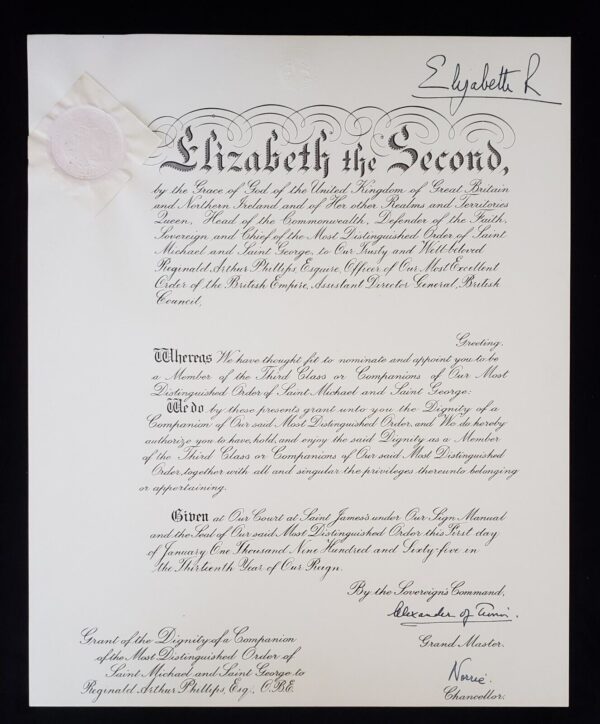 Elizabeth R
Elizabeth the Second,
by the Grace of God of the United Kingdom of Great Britain
and Northern Ireland and of Her other Realms and Territories
Queen, Head of the Commonwealth, Defender of the Faith,
Sovereign and Chief of the Most Distinguished Order of Saint
Michael and Saint George, to Our Trusty and Well-beloved
Reginald Arthur Phillips Esquire, Officer of Our Most Excellent
Order of the British Empire, Assistant Director General, British
Council,
Greeting.
Whereas We have thought fit to nominate and appoint you to be
a Member of the Third Class or Companions of Our Most
Distinguished Order of Saint Michael and Saint George:
We do by these presents grant unto you the Dignity of a
Companion of Our said Most Distinguished Order, and We do hereby
authorize you to have, hold, and enjoy the said Dignity as a Member
of the Third Class or Companions of Our said Most Distinguished
Order, together with all and singular the privileges thereunto belonging
or appertaining.
Given at Our Court at Saint James's under Our Sign Manual
and the Seal of Our said Most Distinguished Order this First day
of January One Thousand Nine Hundred and Sixty-five in
the Thirteenth Year of Our Reign.
By the Sovereign's Command,
Alexander of Tunis.
Grand Master.
Norrie.
Chancellor.
Grant of the Dignity of a Companion
of the Most Distinguished Order of
Saint Michael and Saint George to
Reginald Arthur Phillips, Esq., O.B.E.